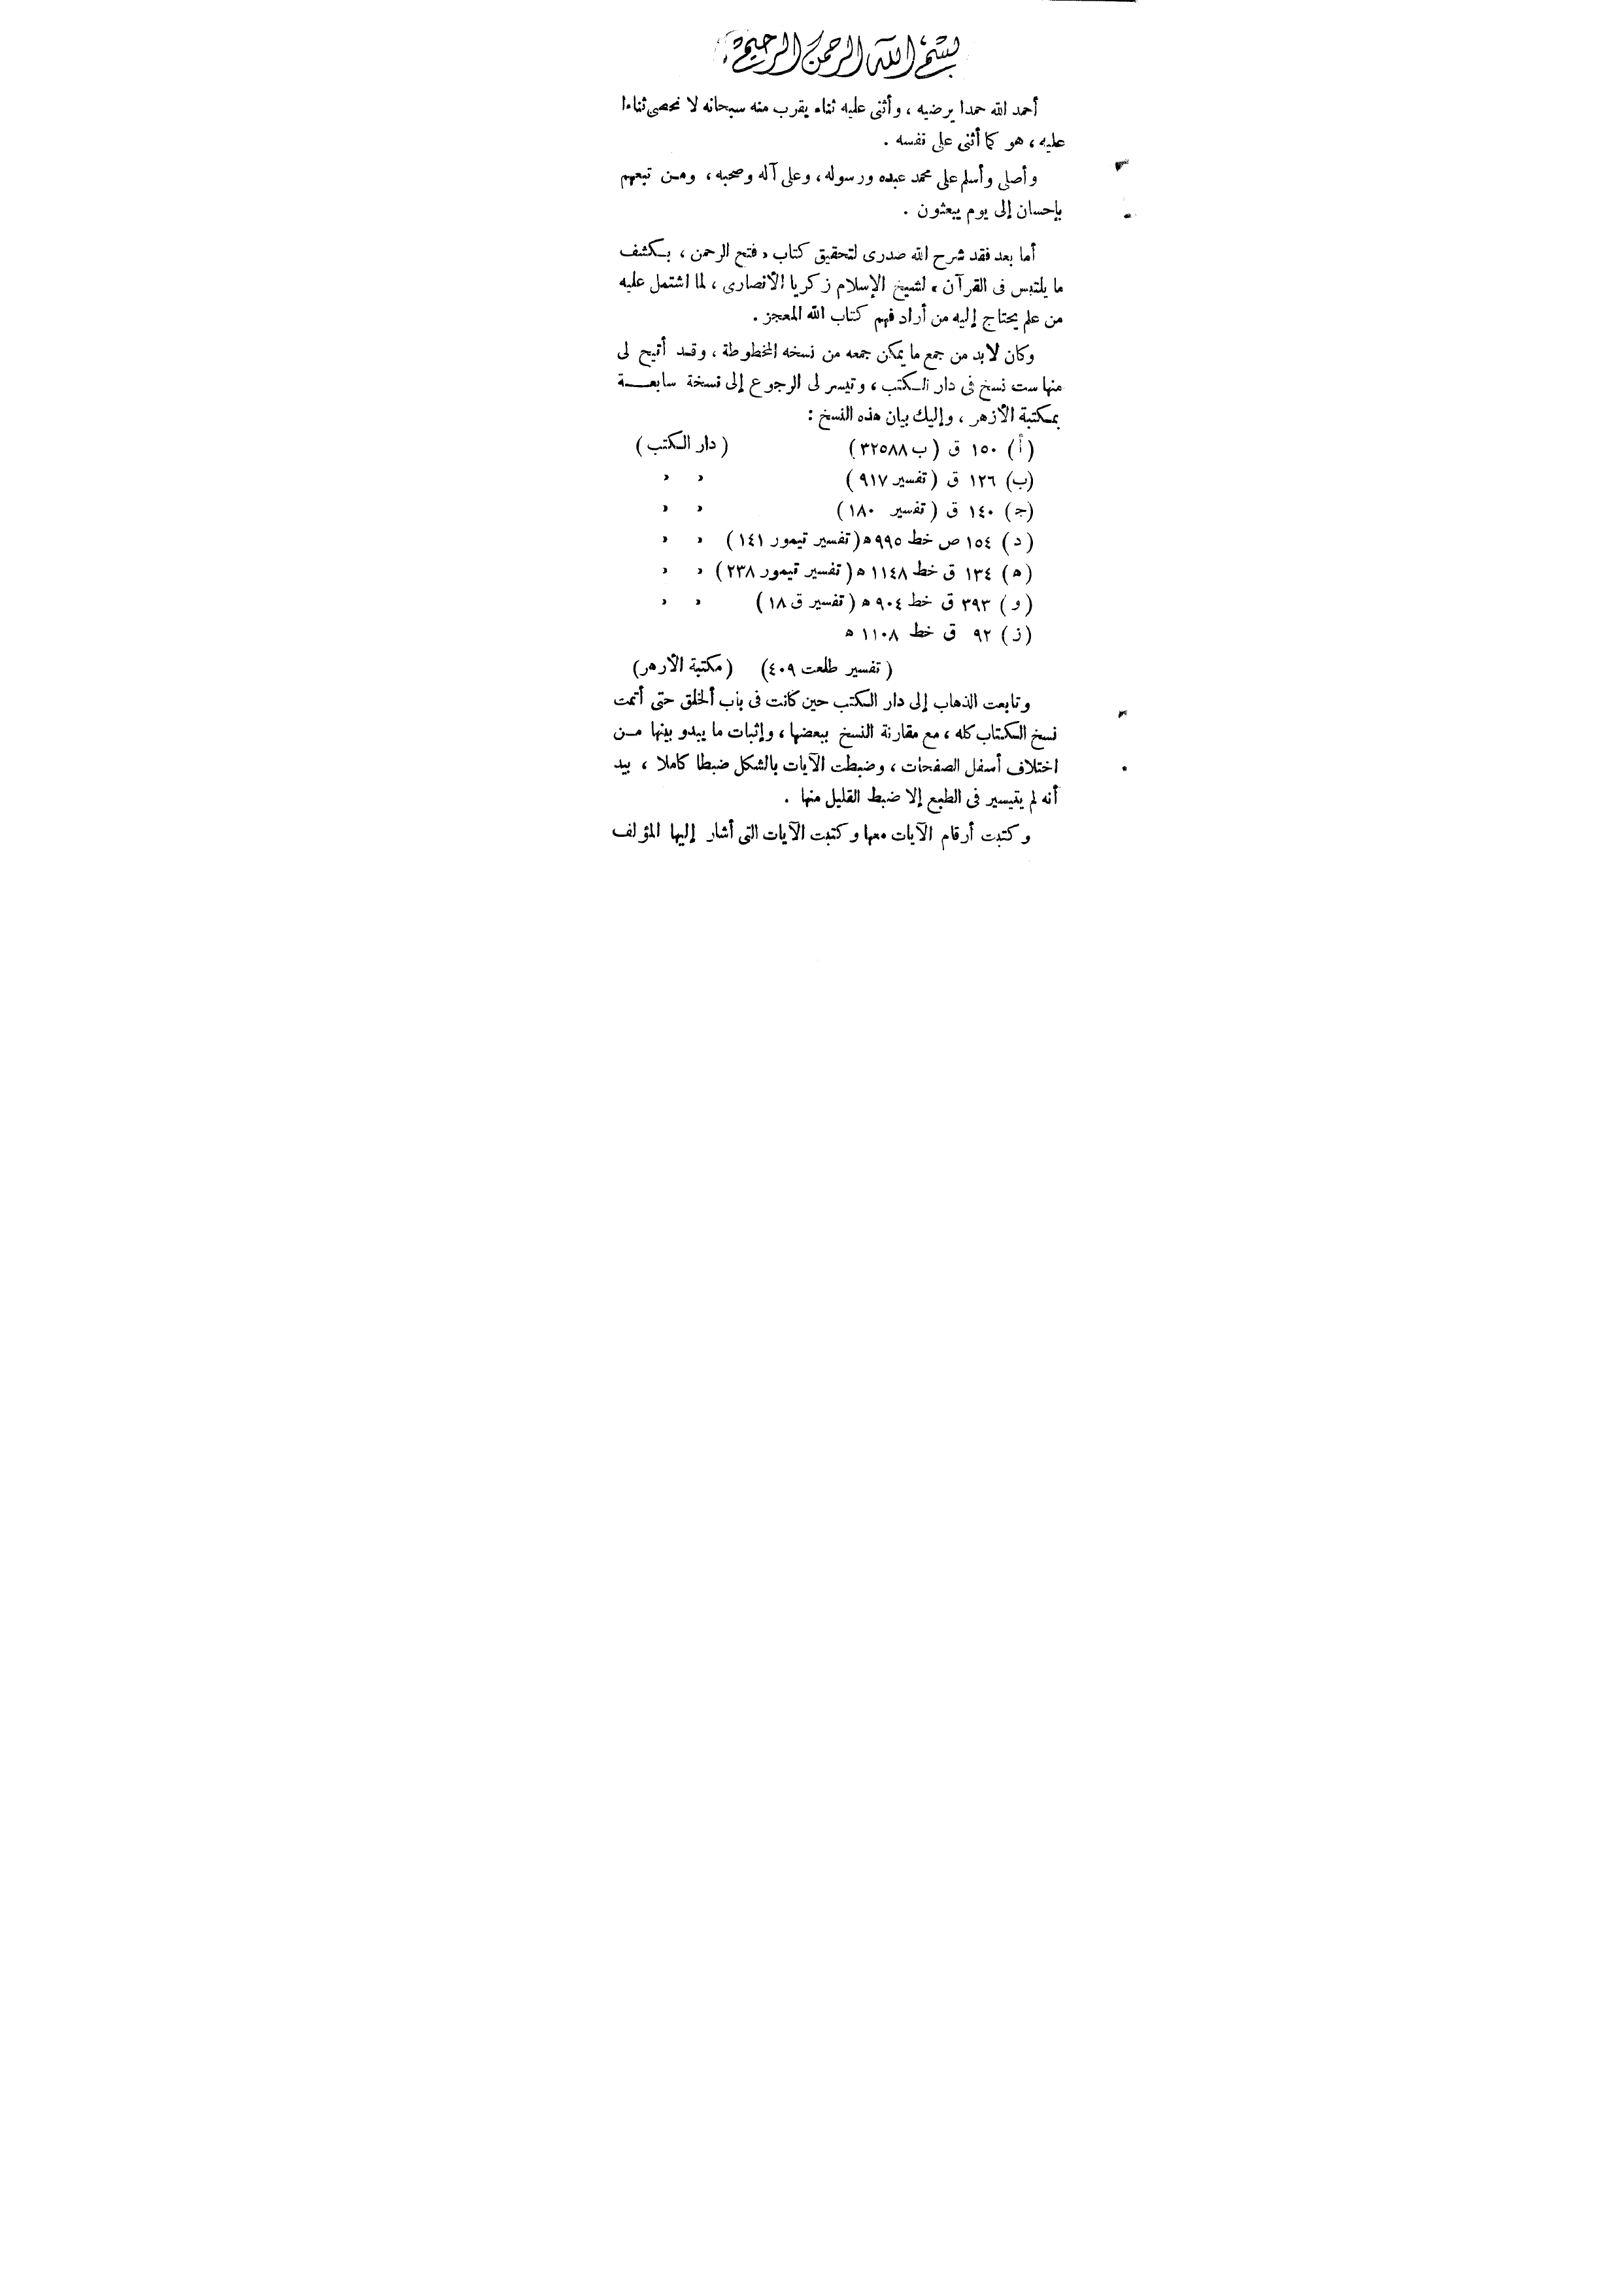 بسم الله الرحمن الرحيم
أحمد الله حمدا يرضيه ، وأثنى عليه ثناء يقرب منه سبحانه لا نحصى ثناءا
عليه ، هو كما أثنى على نفسه .
وأصلى وأسلم على محمد عبده ورسوله ، وعلى آله وصحبه ، ومـن تبعهم
بإحسان إلى يوم يبعثون .
أما بعد فقد شرح الله صدرى لتحقيق كتاب « فتح الرحمن ، بـكشف
ما يلتبس فى القرآن » لشيخ الإسلام زكريا الأنصارى ، لما اشتمل عليه
من علم يحتاج إليه من أراد فهم كتاب الله المعجز .
وكان لابد من جمع ما يمكن جمعه من نسخه المخطوطة ، وقـد أتيح لى
منها ست نسخ فى دار الـكتب ، وتيسر لى الرجوع إلى نسخة سابعـــة
بمـكتبة الأزهر ، وإليك بيان هذه النسخ :
( أ ) ١٥٠ ق ( ب ٣٢٥٨٨ ) ( دار الـكتب )
(ب) ١٢٦ ق ( تفسير ٩١٧ ) » »
(ج) ١٤٠ ق ( تفسير ١٨٠ ) » »
( د ) ١٥٤ ص خط ٩٩٥ ه ( تفسير تيمور ١٤١ ) » »
( ه ) ١٣٤ ق خط ١١٤٨ ه ( تفسير تيمور ٢٣٨ ) » »
( و ) ٣٩٣ ق خط ٩٠٤ ه ( تفسير ق ١٨ ) » »
( ز ) ٩٢ ق خط ١١٠٨ ه
( تفسير طلعت ٤٠٩) (مكتبة الأزهر)
وتابعت الذهاب إلى دار الـكتب حين كانت فى باب الخلق حتى أتممت
نسخ الـكتاب كله ، مع مقارنة النسخ ببعضها ، وإثبات ما يبدو بينها مـن
اختلاف أسفل الصفحات ، وضبطت الآيات بالشكل ضبطا كاملا ، بيد
أنه لم يتيسير فى الطبع إلا ضبط القليل منها .
وكتبت أرقام الآيات معها وكتبت الآيات التى أشار إليها المؤلف